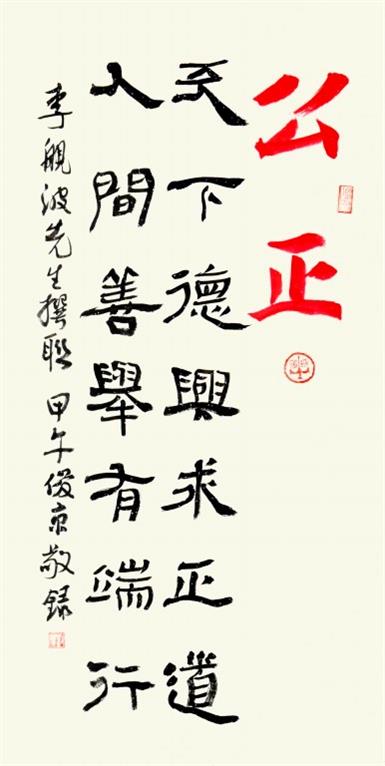 公正
天下德興求正道
人間善舉有端行
李舰波先生撰聯 甲午俊京敬録